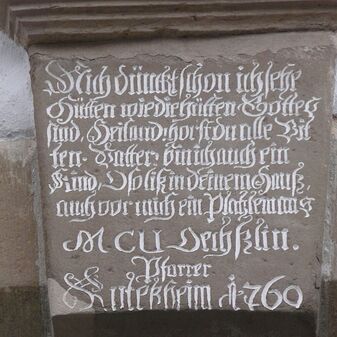 Mich dünckt schon ich sehe
Hütten wie die Hütten Gottes
sind. Heiland, hörst du alle Bit
ten. Vatter, bin ich auch ein
Kind, O so liß in deinem Hauß,
auch vor mich ein Pläzlen aus
M. C. U. Oechßlin.
Pfarrer
Rutesheim A. 1760